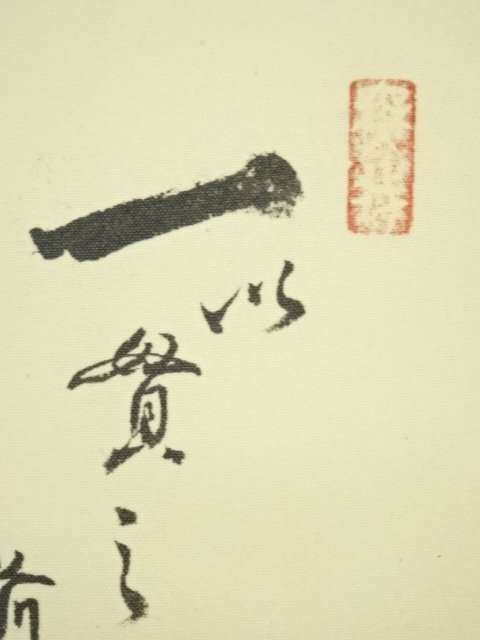 一以貫之